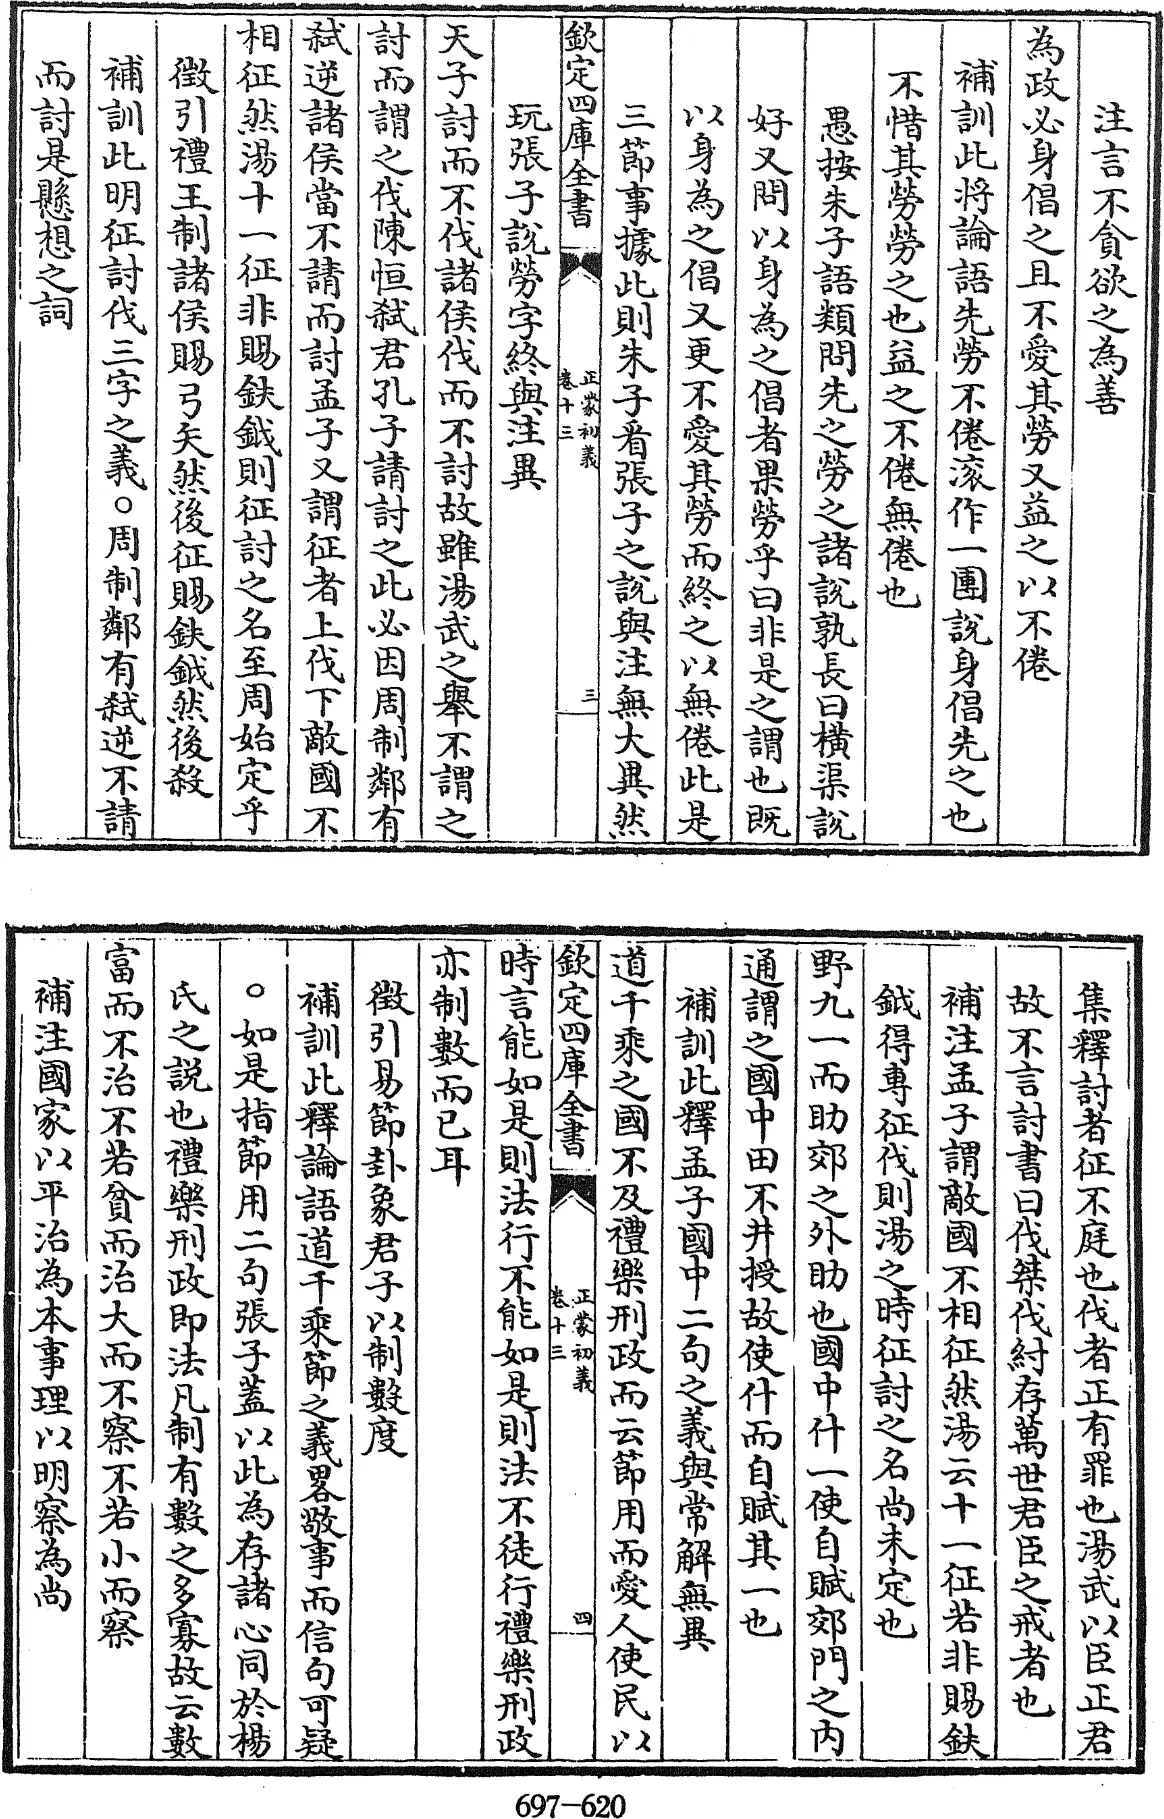 注言不貪欲之為善
為政必身倡之且不愛其勞又益之以不倦
補訓此将論語先勞不倦滚作一團說身倡先之也
不惜其勞勞之也益之不倦無倦也
愚按朱子語類問先之勞之諸説孰長曰橫渠説
好又問以身為之倡者果勞乎曰非是之謂也既
以身為之倡又更不愛其勞而終之以無倦此是
三節事據此則朱子看張子之說與注無大異然
欽定四庫全書
正蒙初義
卷十三
三
玩張子説勞字終與注異
天子討而不伐諸侯伐而不討故雖湯武之舉不謂之
討而謂之伐陳恒弑君孔子請討之此必因周制鄰有
弑逆諸侯當不請而討孟子又謂征者上伐下敵國不
相征然湯十一征非賜鈇鉞則征討之名至周始定乎
徵引禮王制諸侯賜弓矢然後征賜鈇鉞然後殺
補訓此明征討伐三字之義○周制鄰有弑逆不請
而討是懸想之詞
集釋討者征不庭也伐者正有罪也湯武以臣正君
故不言討書曰伐桀伐紂存萬世君臣之戒者也
補注孟子謂敵國不相征然湯云十一征若非賜鈇
鉞得專征伐則湯之時征討之名尚未定也
野九一而助郊之外助也國中什一使自賦郊門之内
通謂之國中田不井授故使什而自賦其一也
補訓此釋孟子國中二句之義與常解無異
道千乘之國不及禮樂刑政而云節用而愛人使民以
欽定四庫全書
正蒙初義
卷十三
四
時言能如是則法行不能如是則法不徒行禮樂刑政
亦制數而已耳
徵引易節卦象君子以制數度
補訓此釋論語道千乘節之義畧敬事而信句可疑
○如是指節用二句張子蓋以此為存諸心同於楊
氏之説也禮樂刑政即法凡制有數之多寡故云數
富而不治不若貧而治大而不察不若小而察
補注國家以平治為本事理以明察為尚
697-620